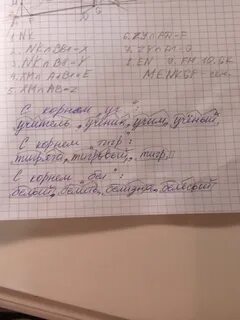 1. NK
2. NK∩BB₁=X
3. NK∩BA=Y
4. XM∩A₁B₁=E
5. XM∩AB=Z
6. ZY∩AD=F
7. ZY∩
8. EN 9. FM 10. GK
MENKGF - сеч.
С корнем „уч“:
учитель, ученик, учим, учёный
С корнем „тигр“:
тигрята, тигровый, тигр.
С корнем „бел“:
белый, белить, белизна, белёсый